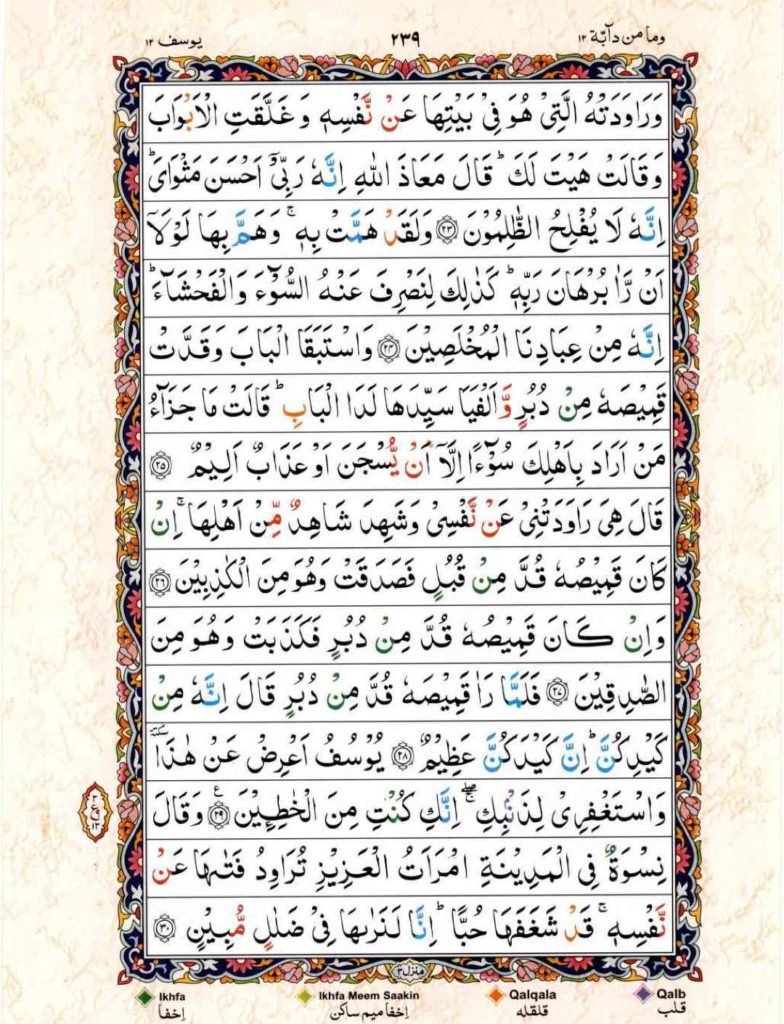 وما من دآبة ۱۲ ۲۳۹ یوسف ۱۲
وَرَاوَدَتْهُ الَّتِیْ هُوَ فِیْ بَیْتِهَا عَنْ نَّفْسِهٖ وَ غَلَّقَتِ الْاَبْوَابَ
وَقَالَتْ هَیْتَ لَكَ ؕ قَالَ مَعَاذَ اللّٰهِ اِنَّهٗ رَبِّیْۤ اَحْسَنَ مَثْوَایَ ؕ
اِنَّهٗ لَا یُفْلِحُ الظّٰلِمُوْنَ ﴿۲۳﴾ وَلَقَدْ هَمَّتْ بِهٖ ۚ وَهَمَّ بِهَا لَوْلَاۤ
اَنْ رَّاٰ بُرْهَانَ رَبِّهٖ ؕ كَذٰلِكَ لِنَصْرِفَ عَنْهُ السُّوْٓءَ وَالْفَحْشَآءَ ؕ
اِنَّهٗ مِنْ عِبَادِنَا الْمُخْلَصِیْنَ ﴿۲۴﴾ وَاسْتَبَقَا الْبَابَ وَقَدَّتْ
قَمِیْصَهٗ مِنْ دُبُرٍ وَّاَلْفَیَا سَیِّدَهَا لَدَا الْبَابِ ؕ قَالَتْ مَا جَزَآءُ
مَنْ اَرَادَ بِاَهْلِكَ سُوْٓءًا اِلَّاۤ اَنْ یُّسْجَنَ اَوْ عَذَابٌ اَلِیْمٌ ﴿۲۵﴾
قَالَ هِیَ رَاوَدَتْنِیْ عَنْ نَّفْسِیْ وَشَهِدَ شَاهِدٌ مِّنْ اَهْلِهَا ۚ اِنْ
كَانَ قَمِیْصُهٗ قُدَّ مِنْ قُبُلٍ فَصَدَقَتْ وَهُوَ مِنَ الْكٰذِبِیْنَ ﴿۲۶﴾
وَاِنْ كَانَ قَمِیْصُهٗ قُدَّ مِنْ دُبُرٍ فَكَذَبَتْ وَهُوَ مِنَ
الصّٰدِقِیْنَ ﴿۲۷﴾ فَلَمَّا رَاٰ قَمِیْصَهٗ قُدَّ مِنْ دُبُرٍ قَالَ اِنَّهٗ مِنْ
كَیْدِكُنَّ ؕ اِنَّ كَیْدَكُنَّ عَظِیْمٌ ﴿۲۸﴾ یُوْسُفُ اَعْرِضْ عَنْ هٰذَا ٚ
وَاسْتَغْفِرِیْ لِذَنْۢبِكِ ۖۚ اِنَّكِ كُنْتِ مِنَ الْخٰطِـِٕیْنَ ﴿۲۹﴾ ع وَقَالَ
نِسْوَةٌ فِی الْمَدِیْنَةِ امْرَاَتُ الْعَزِیْزِ تُرَاوِدُ فَتٰىهَا عَنْ
نَّفْسِهٖ ۚ قَدْ شَغَفَهَا حُبًّا ؕ اِنَّا لَنَرٰىهَا فِیْ ضَلٰلٍ مُّبِیْنٍ ﴿۳۰﴾
منزل ۳
Ikhfa Ikhfa Meem Saakin Qalqala Qalb
اِخفا اِخفا میم ساکن قلقله قلب